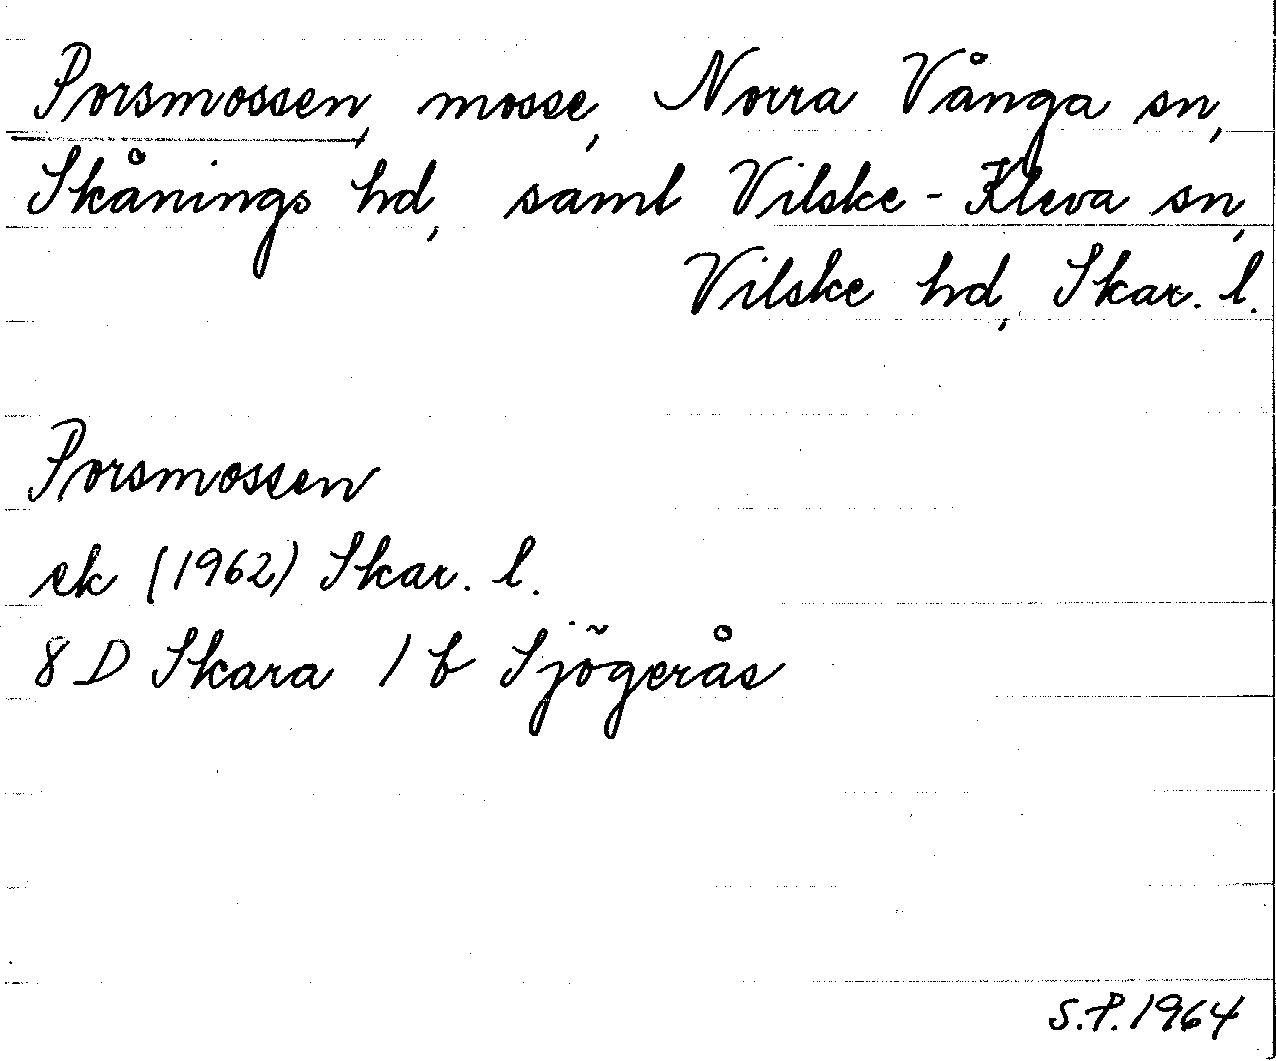 Porsmossen, mosse, Norra Vånga sn,
Skånings hd, samt Vilske-Kleva sn,
Vilske hd, Skar. l.
Porsmossen
ek (1962) Skar. l.
8 D Skara 1 b Sjögerås
S.P. 1964